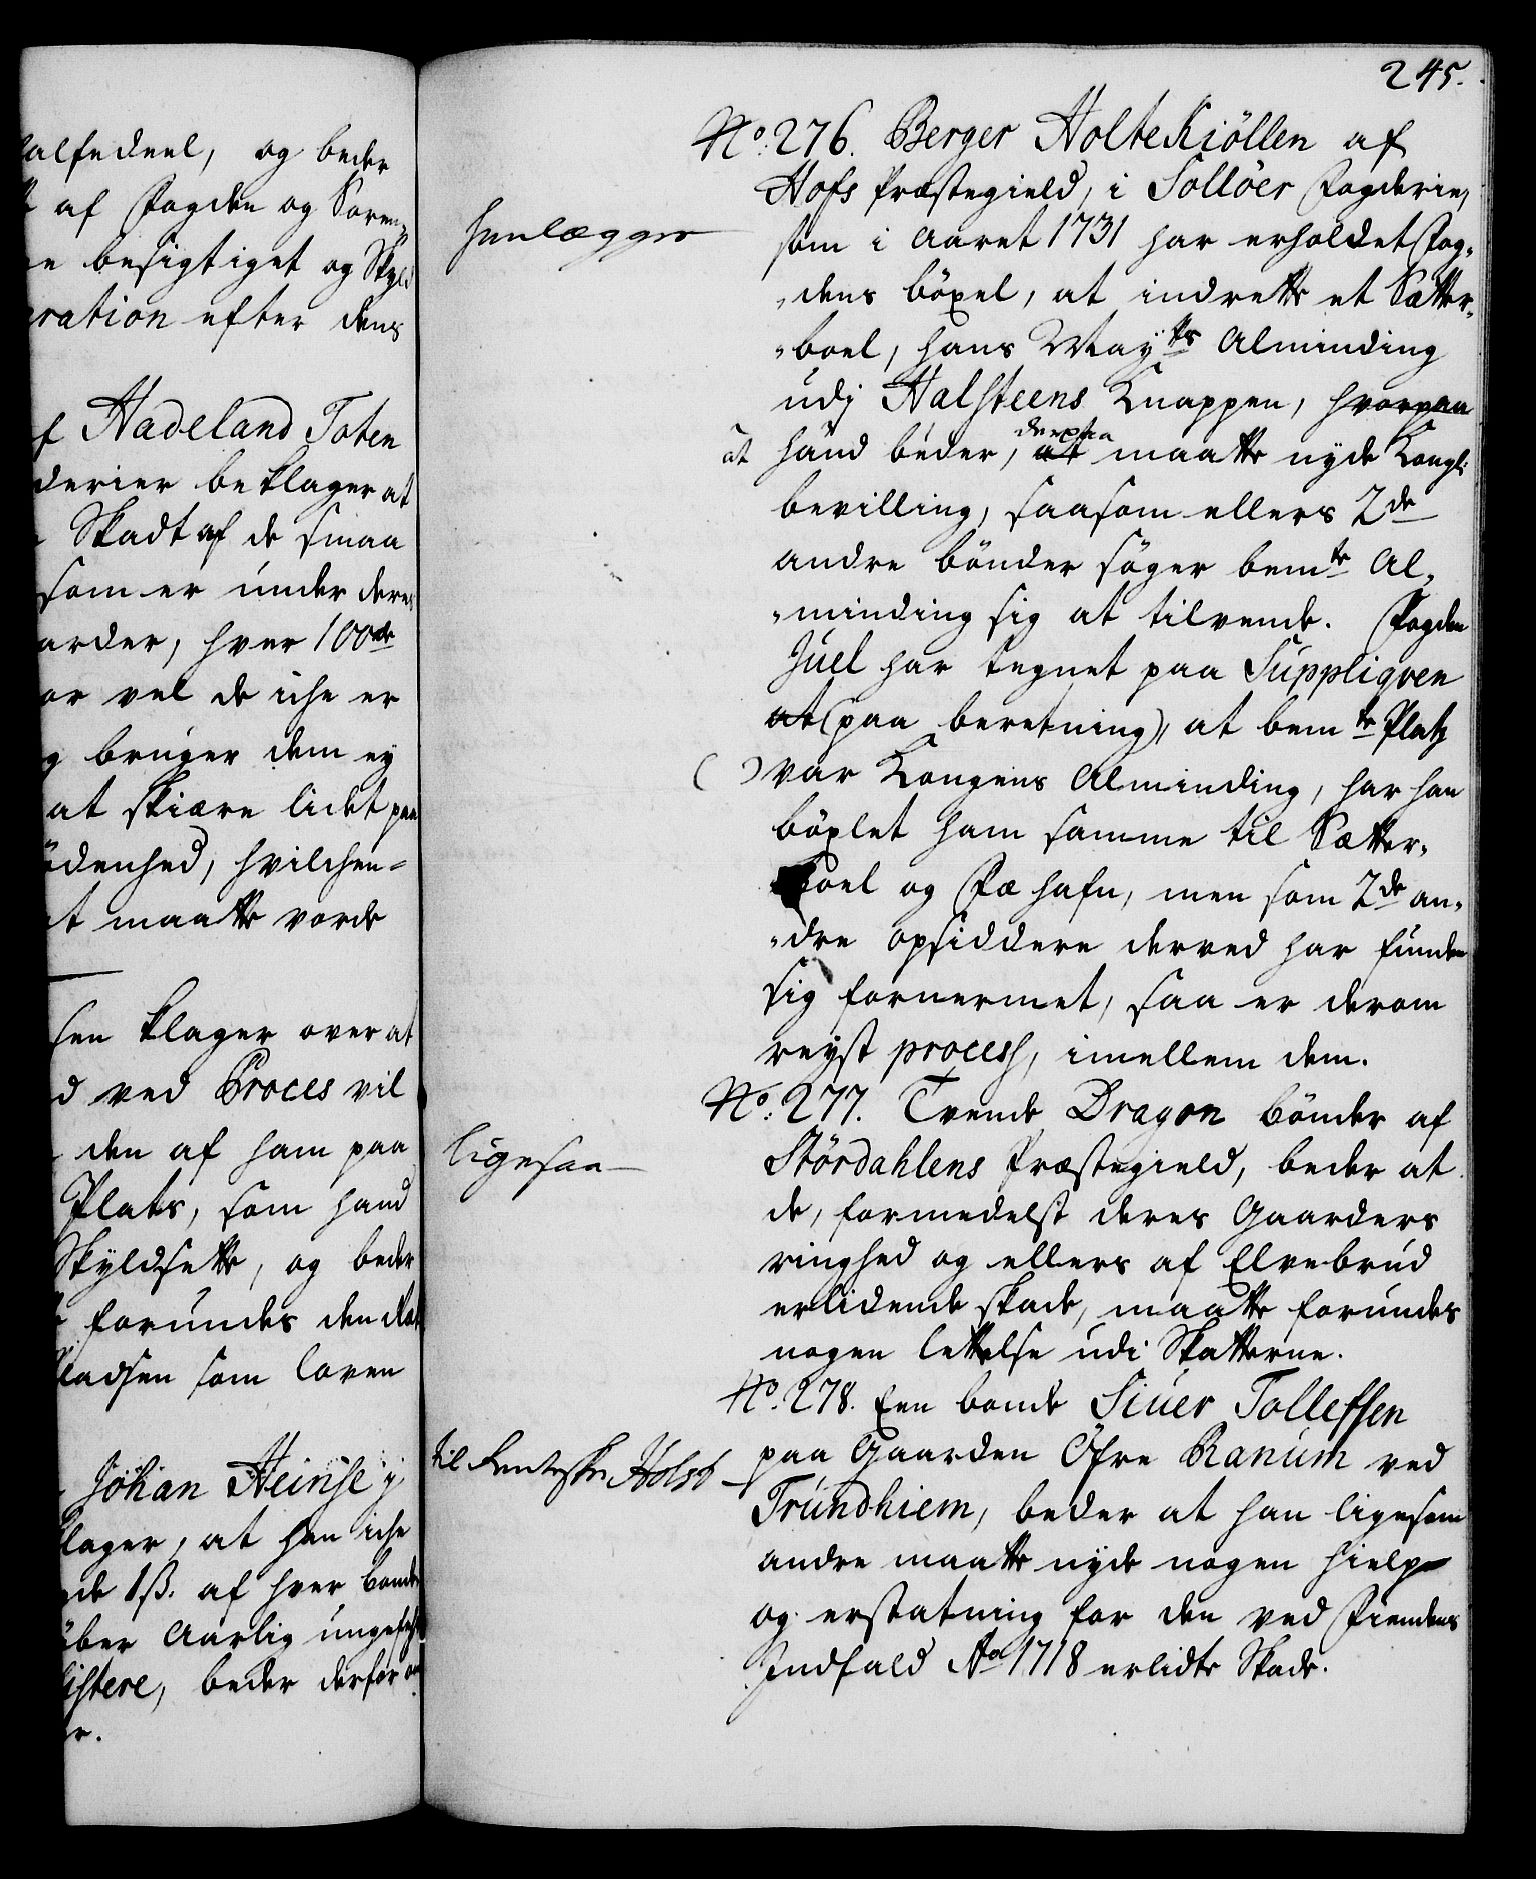 alfedeel, og beder
af Fogden og Soren-
e besigtiget og Skyld
ration efter dens
f Hadeland Toten
derier beklager at
Skadt af de smaa
som er under deres
arder, hver 100de
or vel de iche er
g bruger dem ey
at skiære lidet paa
ödenhed, hvilchen-
t maatte vorde
sen klager over at
d ved Proces vil
den af ham paa
Plats, som hand
Skyldsette, og beder
forundes den
ladsen som loven
Johan Heinse j
lager, at han iche
de 1 ß. af hver bonde
über Aarlig ungefehr
istere, beder derfor om
r.
245.
No: 276. Berger Holtekiöllen af
Hofs Præstegield, i Sollöer Fogderie,
henlægges
som i Aaret 1731 har erholdet Fog-
-dens böxel, at indrette et Sætter-
-boel, hans Mayts Alminding
udj Halsteens Knappen, hvorpaa
at hånd beder, at derpaa maatte nyde Kongl:
bevilling, saasom ellers 2de
andre bönder söger bemte Al-
-minding sig at tilvende. Fogden
Juel har tegnet paa Suppliqven
at (paa beretning), at bemte Platz
( ) var Kongens Alminding, har han
böxlet ham samme til Sætter-
boel og Fæhafn, men som 2de an-
-dre opsiddere derved har funden
sig fornermet, saa er derom
reyst process, imellem dem.
No: 277. Tvende Dragon bönder af
ligesaa
Stördahlens Præstegield, beder at
de, formedelst deres Gaarders
ringhed og ellers af Elvebrud
erlidende skade, maatte forundes
nogen lettelse udi Skatterne.
No. 278. Een bonde Siuer Tollefsen
til Renteskr Holst
paa Gaarden Öfre Ranum ved
Trundhiem, beder at han ligesom
andre maatte nyde nogen hielp
og erstatning for den ved Fiendens
Indfald Ao 1718 erlidte Skade.